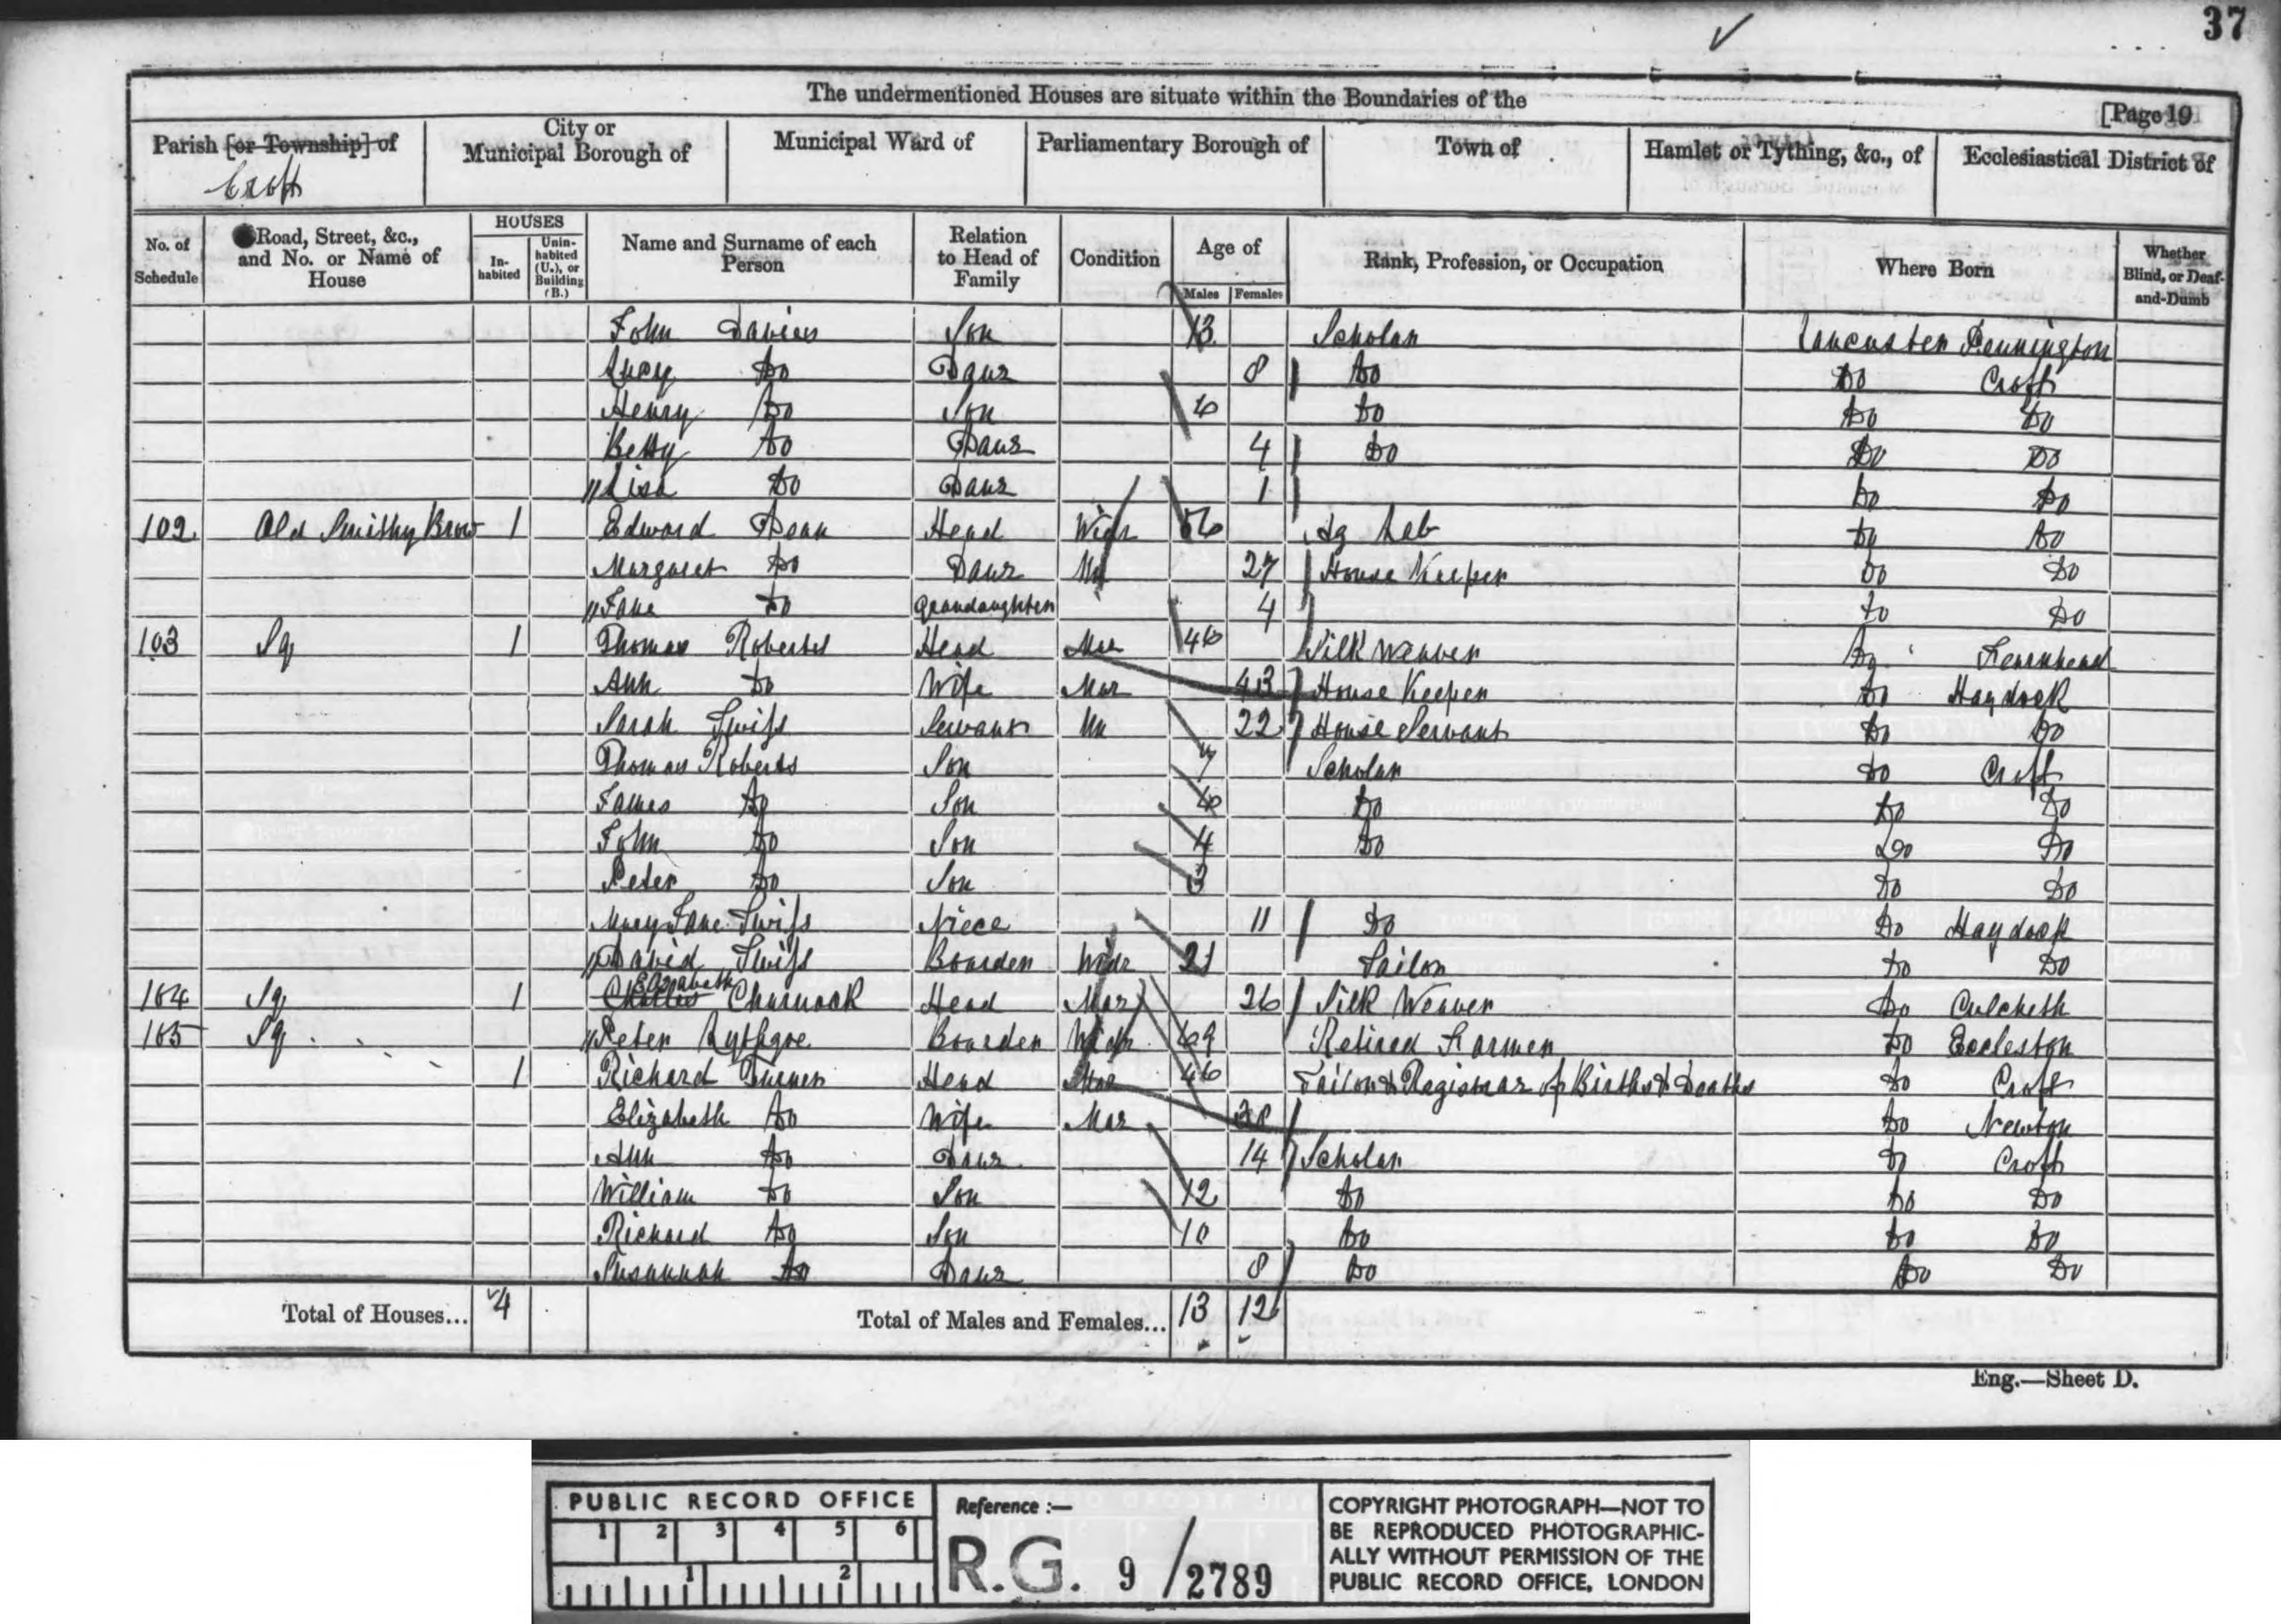 37
The undermentioned Houses are situate within the Boundaries of the
[Page 19
Parish [or Township] of
Croft
City or
Municipal Borough of
Municipal Ward of
Parliamentary Borough of
Town of
Hamlet or Tything, &c., of
Ecclesiastical District of
No. of Schedule
Road, Street, &c., and No. or Name of House
HOUSES
In-habited
Unin-habited (U.), or Building (B.)
Name and Surname of each Person
Relation to Head of Family
Condition
Age of
Males Females
Rank, Profession, or Occupation
Where Born
Whether Blind, or Deaf-and-Dumb
John Davies Son 13 Scholar Lancaster Pennington
Lucy Do Daur 8 Do Do Croft
Henry Do Son 6 Do Do Do
Betty Do Daur 4 Do Do Do
Lisa Do Daur 1 Do Do
102 Old Smithy Brow 1 Edward Dean Head Widr 56 Ag Lab Do Do
Margaret Do Daur Un 27 House Keeper Do Do
Jane Do Grandaughter 4 Do Do
103 Sq 1 Thomas Roberts Head Mar 46 Silk Weaver Do Fearnhead
Ann Do Wife Mar 43 House Keeper Do Haydock
Sarah Swifs Servant Un 22 House Servant Do Do
Thomas Roberts Son 7 Scholar Do Croft
James Do Son 6 Do Do Do
John Do Son 4 Do Do Do
Peter Do Son 3 Do Do
Mary Jane Swifs Niece 11 Do Do Haydock
David Swifs Boarder Widr 21 Tailor Do Do
104 Sq 1 Charles Elizabeth Charnock Head Mar 26 Silk Weaver Do Culcheth
105 Sq Peter Rythgoe Boarder Widr 69 Retired Farmer Do Eccleston
1 Richard Turner Head Mar 46 Tailor & Registrar of Births & Deaths Do Croft
Elizabeth Do Wife Mar Do Newton
Ann Do Daur 14 Scholar Do Croft
William Do Son 12 Do Do Do
Richard Do Son 10 Do Do Do
Susannah Do Daur 8 Do Do Do
Total of Houses... 4
Total of Males and Females... 13 12
Eng.—Sheet D.
PUBLIC RECORD OFFICE
1 2 3 4 5 6
1 2
Reference :—
R.G. 9/2789
COPYRIGHT PHOTOGRAPH—NOT TO
BE REPRODUCED PHOTOGRAPHIC-
ALLY WITHOUT PERMISSION OF THE
PUBLIC RECORD OFFICE, LONDON